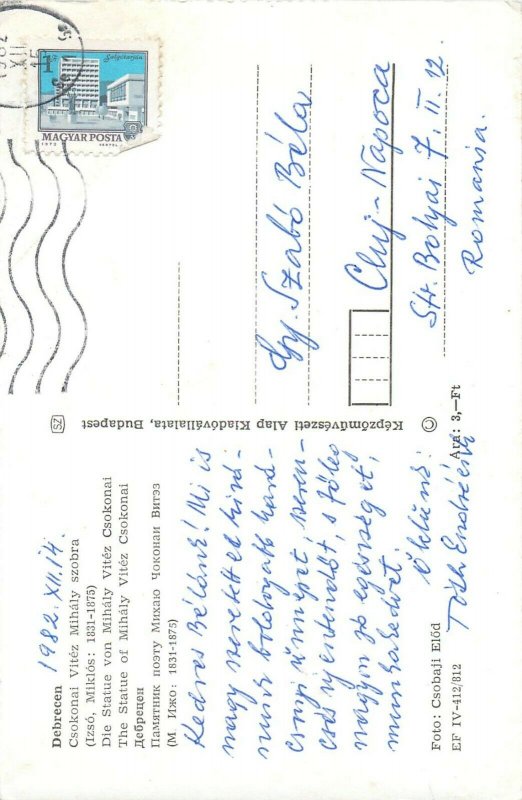 Debrecen 1982. XII. 14.
Csokonai Vitéz Mihály szobra
(Izsó, Miklós: 1831-1875)
Die Statue von Mihály Vitéz Csokonai
The Statue of Mihály Vitéz Csokonai
Дебрецен
Памятник поэту Михаю Чоконаи Витэз
(М. Ижо: 1831-1875)
Kedves Bélánk! Mi is
nagy szeretettel kívá-
nunk boldogabb kará-
csonyi ünnepet, szeren-
csés új esztendőt, s főleg
nagyon jó egészséget,
munkakedvet.
Ölelünk:
Tóth Endréék
Foto: Csobaji Előd
EF IV-412/812
SZ
Képzőművészeti Alap Kiadóvállalata, Budapest
©
Ára: 3,-Ft
1982
XII
15
1 Ft
Salgótarján
MAGYAR POSTA
1972
Gy. Szabó Béla
Cluj-Napoca
Str. Bolyai 7. II. 12.
Romania.